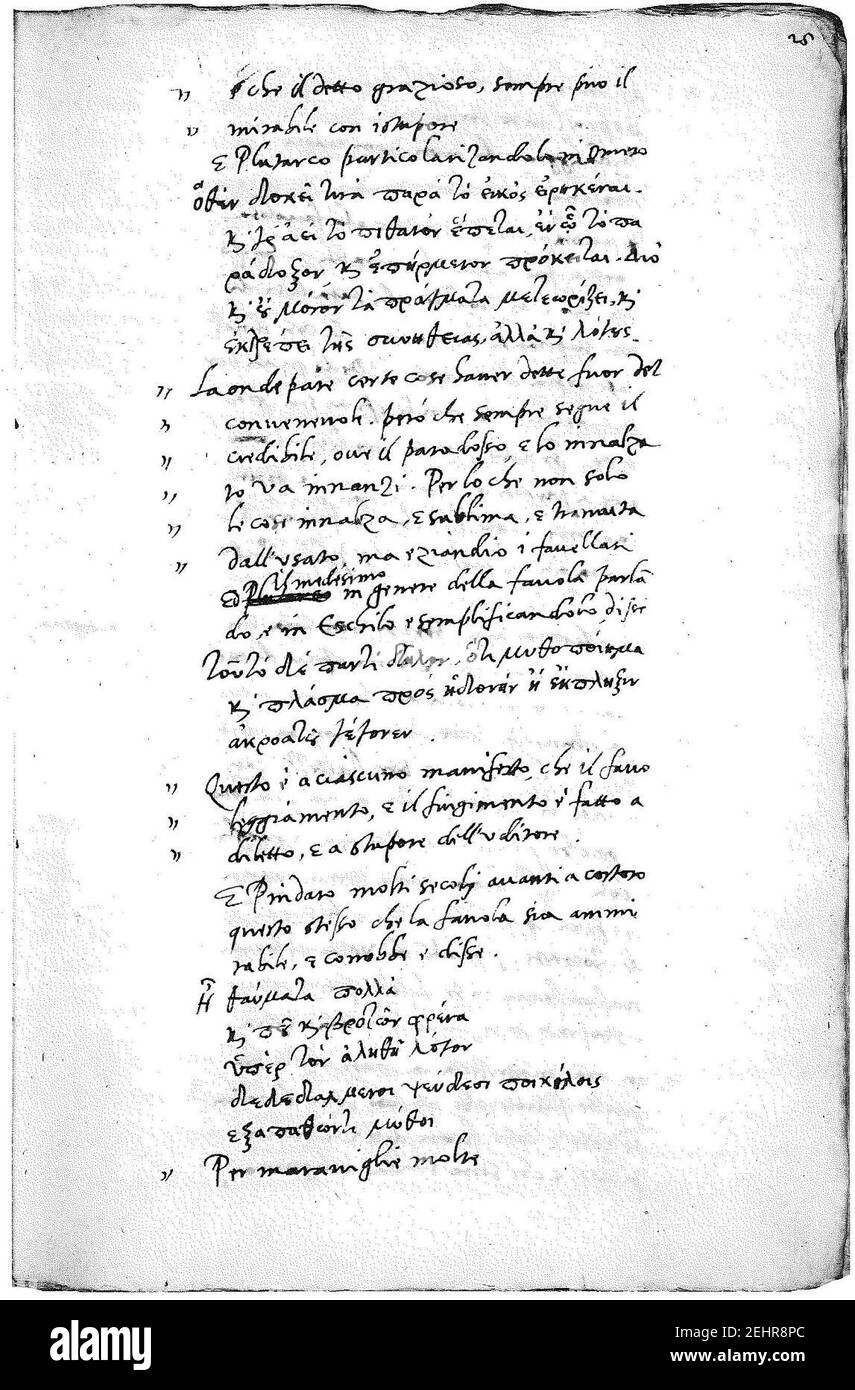 25
” e che il detto grazioso, sempre può il
” mirabile con istupore
E Plutarco particolarizandola in Omero
Ὅθεν δοκεῖ τινὰ παρὰ τὸ εἰκὸς εἰρηκέναι.
καὶ γὰρ ἀεὶ τὸ πιθανὸν ἕπεται, ἐν ᾧ τὸ πα
ράδοξον, καὶ ἐπηρμένον πρόκειται. Διὸ
καὶ οὐ μόνον τὰ πράγματα μετεωρίζει, καὶ
ἐκτρέπει τῆς συνηθείας, ἀλλὰ καὶ λόγους.
” La onde pare certe cose haver dette fuor del
” convenevole. però che sempre segue il
” credibile, ove il paradosso, e lo innalza
” to va innanzi. Per lo che non solo
” le cose innalza, e sublima, e tramuta
” dall'usato, ma eziandio i favellari
Ed il medesimo in genere della favola parlā
do, e in Eschilo esemplificandolo, disse
τοῦτο δὲ παντὶ δῆλον, ὅτι μυθοποίημα
καὶ πλάσμα πρὸς ἡδονὴν ἢ ἔκπληξιν
ἀκροατοῦ γέγονεν.
” Questo è a ciascuno manifesto, che il favo
” leggiamento, e il fingimento è fatto a
” diletto, e a stupore dell'uditore.
E Pindaro molti secoli avanti a costoro
questo stesso che la favola sia ammi
rabile, e conobbe e disse.
Ἦ θαύματα πολλὰ
καὶ πού καὶ βροτῶν φρένα
ὑπὲρ τὸν ἀληθῆ λόγον
δεδεδαλμένοι ψεύδεσι ποικίλοις
ἐξαπατῶντι μῦθοι
” Per maraviglie molte
alamy
Image ID: 2EHR8PC
www.alamy.com